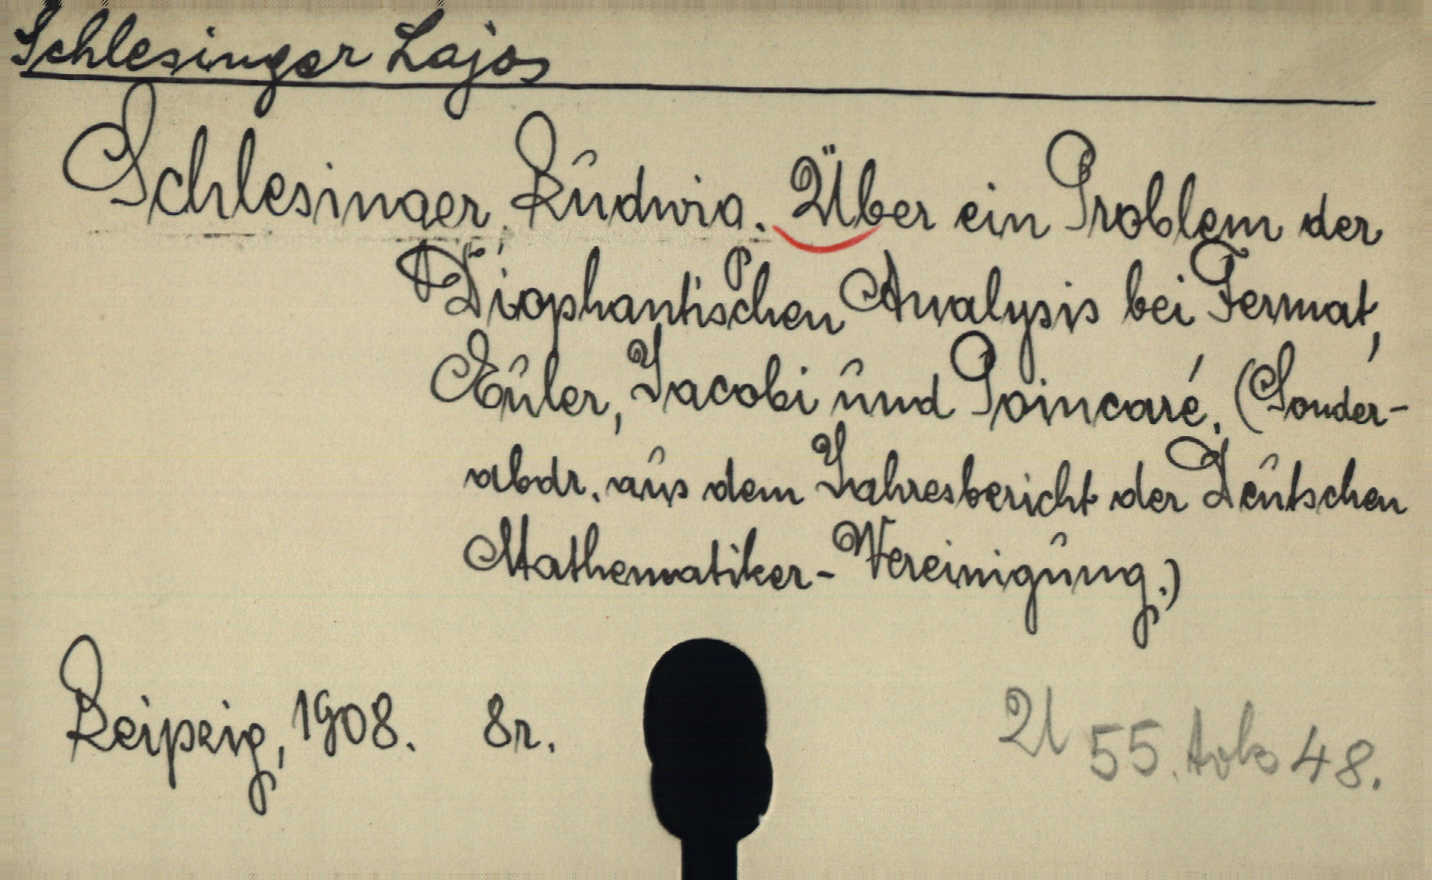 Schlesinger Lajos
Schlesinger, Ludwig. Über ein Problem der
Diophantischen Analysis bei Fermat,
Euler, Jacobi und Poincaré. (Sonder-
abdr. aus dem Jahresbericht der Deutschen
Mathematiker-Vereinigung.)
Leipzig, 1908. 8r.
55. 48.